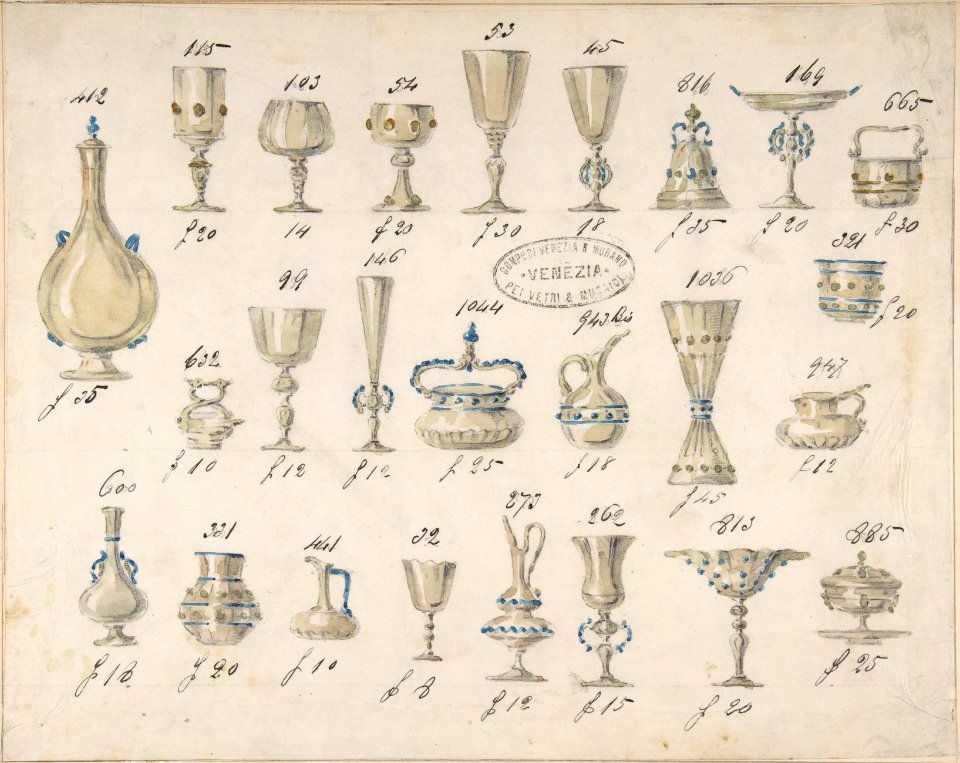 412
115
103
54
53
45
816
169
665
f 20
14
f 20
f 30
18
f 35
f 20
f 30
321
f 20
f 35
COMP DI VENEZIA & MURANO
VENEZIA
PEI VETRI & MOSAICI
632
99
146
1044
943 Bis
1036
947
f 10
f 12
f 12
f 25
f 18
f 45
f 12
600
331
441
32
273
262
813
885
f 18
f 20
f 10
f 8
f 12
f 15
f 20
f 25